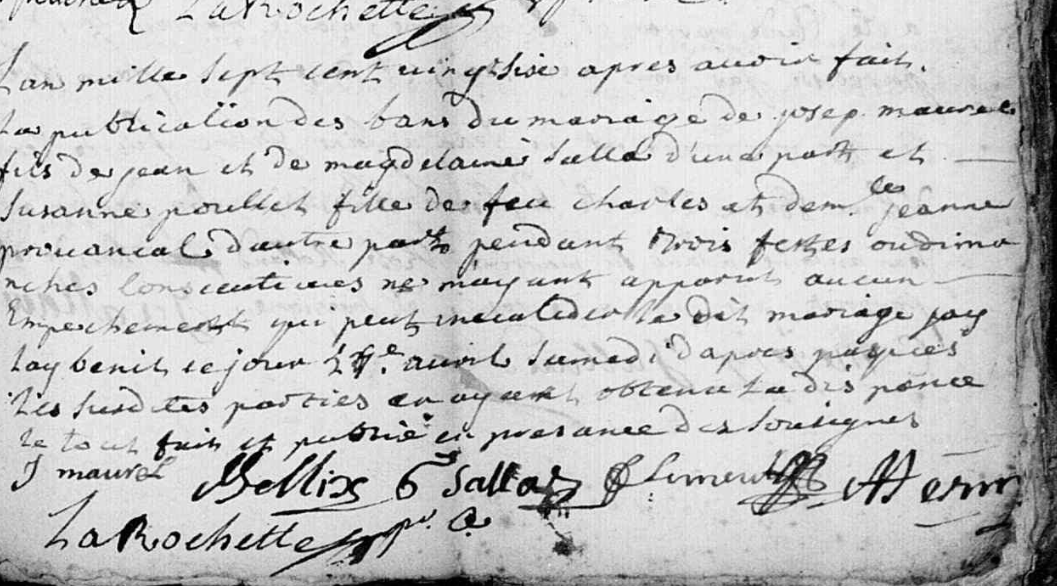 LaRochette
Lan mille sept cent vingtsix apres avoir fait
La publication des bans du mariage de josep maurel
fils de jean et de magdelaine Salla d'une part et
Susanne poullet fille de feu charles et dem.le jeanne
prouancal d'autre part pendant trois festes oudima
nches consecutiues ne mayant apparut aucun
Empechement qui peut inualider le dit mariage jay
Lay benit ce jour auril Samedi d'apres paques
Les susdites parties en ayant obtenu La dispence
le tout fait et publié en presance des Sousignes
J maurel Bellix Salla
LaRochette